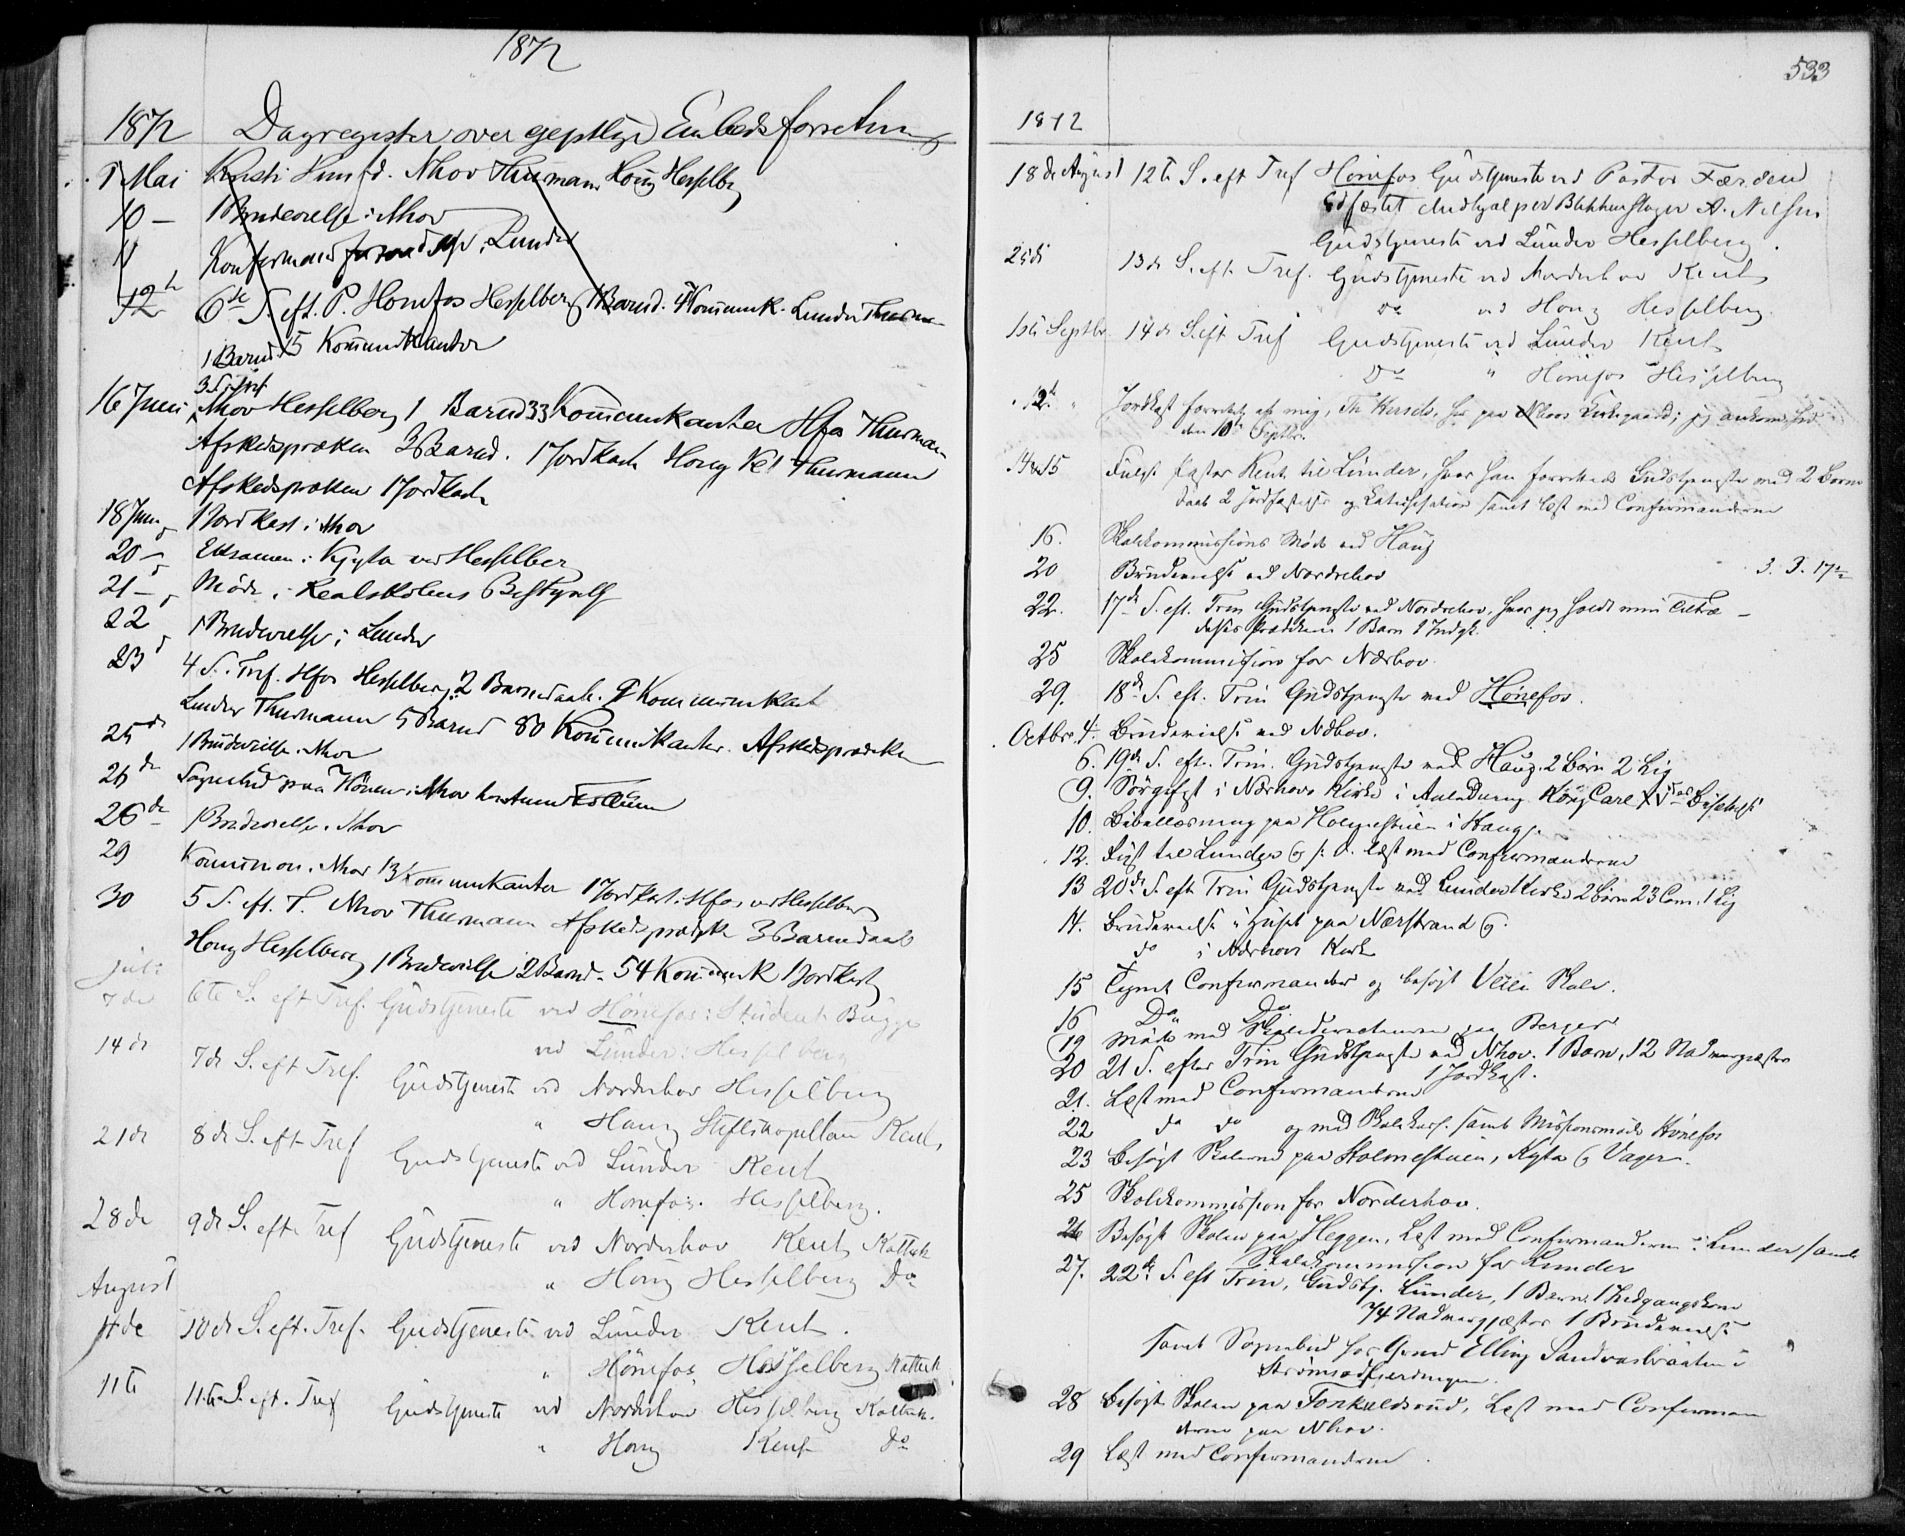 1872
1872 Dagregister over geistlige Embedsforretn
9 Mai Kristi Himfd. Nhov Thurmann Houg Hesselbg
10 — 1 Brudevielse i Nhov
11 Konfirmand Lunder
12th 6de S. eft. P. Hønefos Hesselberg 1 Barnd. 4 Komunik. Lunder Thurm
1 Barnd 15 Komunikanter
3 S. e. Tref.
16 Juni Nhov Hesselberg 1 Barnd 33 Komunikanter Hfos Thurman
Afskedspræken 3 Barnd. 1 Jordkast Houg Thurmann
Afskedspræken 1 Jordkast
18 Juni 1 Jordkast i Nhov
20 — Eksamen i Kjyta ved Hesselberg
21 — Møde i Realskolens Bestyrelse
22 1 Brudevielse i Lunder
23 4 S. Tref. Hfos Hesselberg 2 Barnedaab. 9 Kommunikant
Lunder Thurmann 5 Barnd 80 Komunikanter. Afskedspræken
25de 1 Brudevielse i Nhov
26de Sognebud paa Hønen i Nhov
26de 1 Brudevielse i Nhov
29 Komunion i Nhov 13 Komunikanter 1 Jordkast i Hfos ved Hesselberg
30 5 S. eft. T. Nhov Thurmann Afskedspræken 3 Barnedaab
Houg Hesselberg 1 Brudevielse 2 Barnd. 54 Komunik 1 Jordkast
Juli
7de 6te S. eft Tref. Gudstjeneste ved Hønefos: Student Bugge
ved Lunder: Hesselberg
14de 7de S. eft Tref. Gudstjeneste ved Norderhov Hesselberg
" Houg Stiftskapellan Kent
21de 8de S. eft Tref Gudstjeneste ved Lunder Kent
" Hønefos. Hesselberg.
28de 9de S. eft Tref Gudstjeneste ved Norderhov Kent Katkek
" Houg Hesselberg Do
August
4de 10de S. eft. Tref. Gudstjeneste ved Lunder Kent.
" Hønefos Hesselberg Katkek
11te 11te S. eft. Tref Gudstjeneste ved Norderhov Hesselberg Katkek.
" Houg Kent Do
533
1872
18de August 12te S. eft Tref Hønefos Gudstjeneste ved Pastor Færden
Edfæstet Medhjælper Blikkenslager A. Nilsen
Gudstjeneste ved Lunder Hesselberg.
25de 13de S. eft. Tref. Gudstjeneste ved Norderhov Kent
Do ved Houg Hesselberg.
1ste Septbr 14de S. eft Tref Gudstjeneste ved Lunder Kent
Do " Hønefos Hesselberg
12te " Jordkast forrettet af mig, Th. paa Nhovs Kirkegaard; jeg ankom hid
den 10de Septbr.
14 & 15 Fulgt Pastor Kent til Lunder, hvor han forrettede Gudstjeneste med 2 Børne
daab 2 Jordfæstelser og Katechisation samt læst med Confirmanderne
16. Skolekommissions Møde ved Haug
20 Brudevielse ved Norderhov
22. 17de S. eft. Trin Gudstjeneste ved Norderhov, hvor jeg holdt min Tiltræ-
delses Prædiken 1 Barn 1 Indgk.
25 Skolekommission for Nærhov.
29. 18de S. eft. Trin Gudstjeneste ved Hønefos.
Octbr. 4. Brudevielse ved Nhov.
6. 19de S. eft. Trin. Gudstjeneste ved Haug. 2 Børn 2 Lig
9. Sørgefest i Nærhovs Kirke i Anledning Kong Carl XVdes Bisættelse
10. Bibellæsning paa Holmestuen i Haug.
12. Rejst til Lunder & læst med Confirmanderne
13 20de S. eft Trin Gudstjeneste ved Lunder Kirke 2 Børn 23 Com. 1 Lig
14. Brudevielse i Huset paa Nærstrand &
do i Nærhovs Kirke
15 Tegnet Confirmander og besøgt Veien Skole.
16 Do Do
19 Møde med Skoledirecteuren paa Berger
20 21 S. efter Trin Gudstjeneste ved Nhov. 1 Barn, 12 Nadvergjæster
1 Jordkast.
21. Læst med Confirmanterne
22 do do og med samt Missionsmøde Hønefos
23 Besøgt Skolerne paa Holmestuen, Kyta & Vager.
25 Skolekommission for Norderhov.
26 Besøgt Skolen paa Heggen, Læst med Confirmanderne i Lunder samt
Skolekommission for Lunder
27. 22de S. eft Trin, Gudstj. Lunder, 1 Barn, 1 Indgangskone
74 Nadvergjæster 1 Brudevielse
samt Sognebud hos Elling Sandvasbraaten i
Strømsodfjerdingen.
28 Besøgt Skolen paa Torkeldsrud, Læst med Confirman
derne paa Nhov.
29 Læst med Confirmanderne